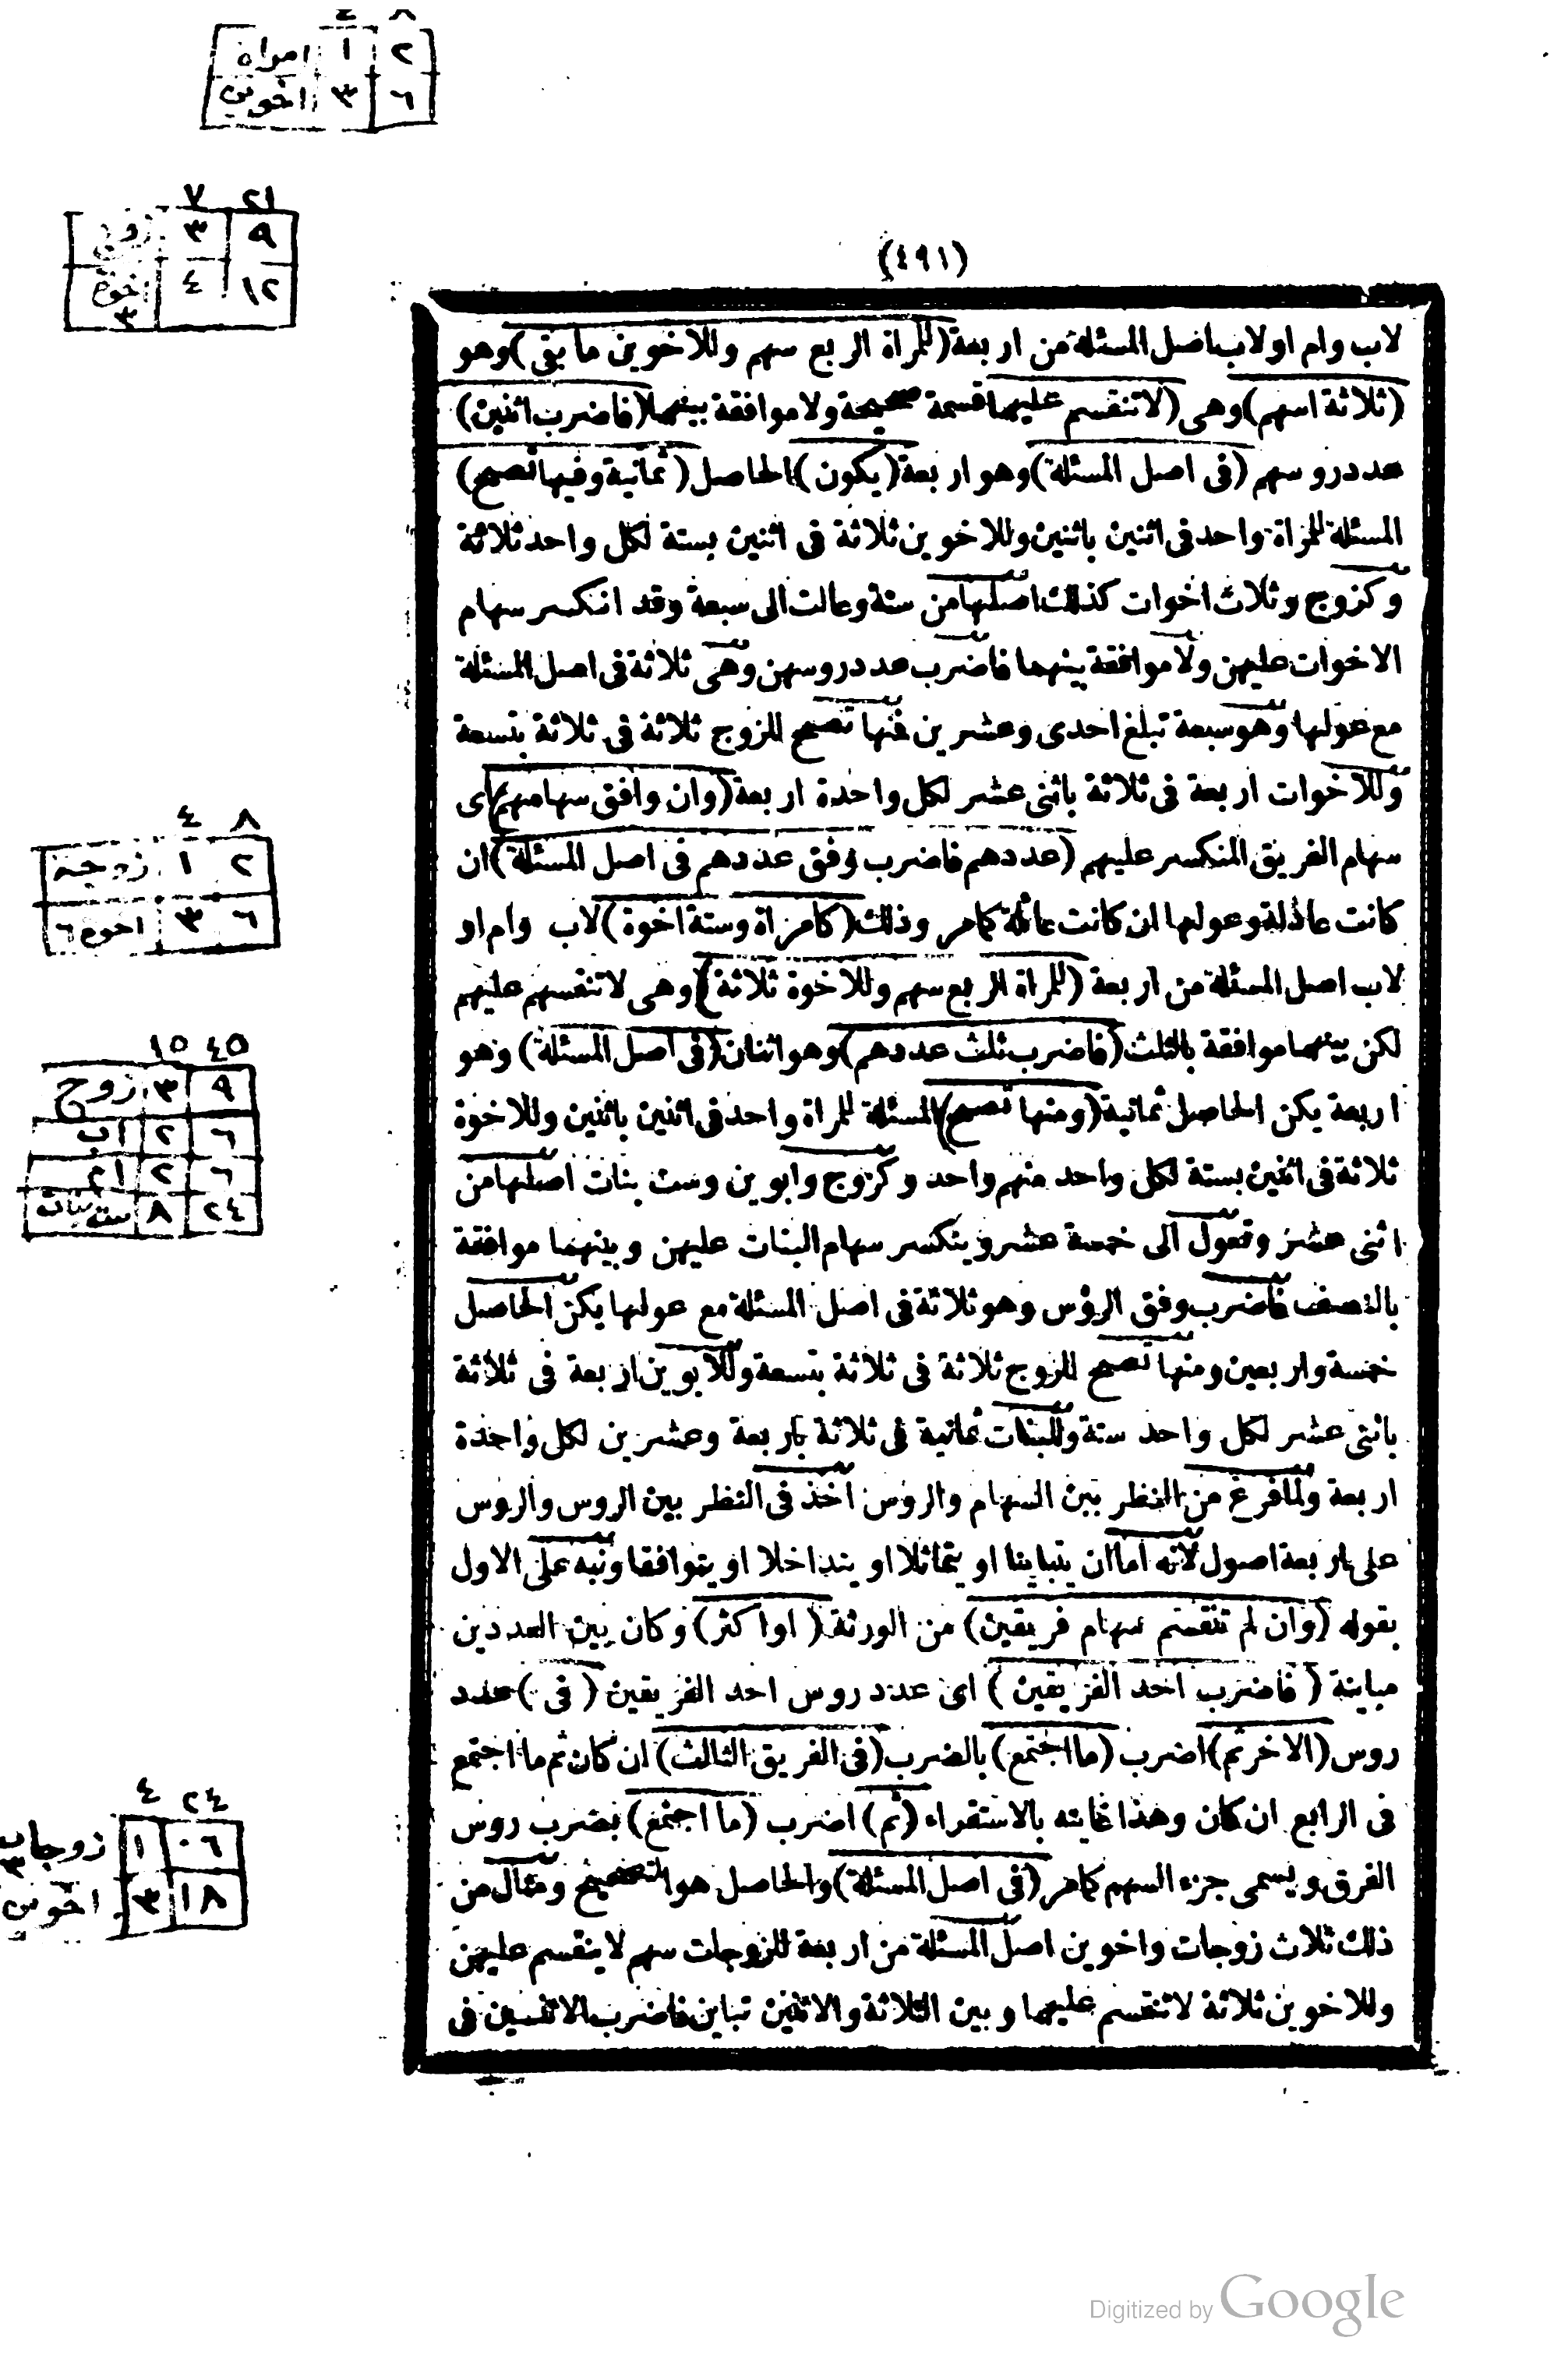 (٤٩١)
لاب وام اولاب اصل المسئلة من اربعة (للمرأة الربع سهم وللاخوين ما بقى) وهو
(ثلاثة اسهم) وهى (لاتنقسم عليهما قسمة صحيحة ولا موافقة بينهما (فاضرب اثنين)
عدد روسهم (فى اصل المسئلة) وهو اربعة (يكون) الحاصل (ثمانية وفيها تصح)
المسئلة للمراة واحد فى اثنين باثنين وللاخوين ثلاثة فى اثنين بستة لكل واحد ثلاثة
وكزوج وثلاث اخوات كذلك اصلها من ستة وعالت الى سبعة وقد انكسر سهام
الاخوات عليهن ولا موافقة بينهما فاضرب عدد روسهن وهى ثلاثة فى اصل المسئلة
مع عولها وهو سبعة تبلغ احدى وعشرين فمنها تصح للزوج ثلاثة فى ثلاثة بتسعة
وللاخوات اربعة فى ثلاثة باثنى عشر لكل واحدة اربعة (وان وافق سهامهم) اى
سهام الفريق المنكسر عليهم (عددهم فاضرب وفق عددهم فى اصل المسئلة) ان
كانت عادلة وعولها ان كانت عائلة كمامر وذلك (كامرأة وستة اخوة) لاب وام او
لاب اصل المسئلة من اربعة (للمراة الربع سهم وللاخوة ثلاثة) وهى لاتنقسم عليهم
لكن بينهما موافقة بالثلث (فاضرب ثلث عددهم) وهو اثنان (فى اصل المسئلة) وهو
اربعة يكن الحاصل ثمانية (ومنها تصح) المسئلة للمراة واحد فى اثنين باثنين وللاخوة
ثلاثة فى اثنين بستة لكل واحد منهم واحد وكزوج وابوين وست بنات اصلها من
اثنى عشر وتعول الى خمسة عشر وينكسر سهام البنات عليهن وبينهما موافقة
بالنصف فاضرب وفق الرؤس وهو ثلاثة فى اصل المسئلة مع عولها يكن الحاصل
خمسة واربعين ومنها تصح للزوج ثلاثة فى ثلاثة بتسعة وللابوين اربعة فى ثلاثة
باثنى عشر لكل واحد ستة وللبنات ثمانية فى ثلاثة باربعة وعشرين لكل واحدة
اربعة ولما فرغ من النظر بين السهام والروس اخذ فى النظر بين الروس والروس
على اربعة اصول لانه اما ان يتباينا او يتماثلا او يتداخلا او يتوافقا ونبه على الاول
بقوله (وان لم تنقسم سهام فريقين) من الورثة (اواكثر) وكان بين العددين
مباينة (فاضرب احد الفريقين) اى عدد روس احد الفريقين (فى) عدد
روس (الاخر ثم) اضرب (ما اجتمع) بالضرب (فى الفريق الثالث) ان كان ثم ما اجتمع
فى الرابع ان كان وهذا غايته بالاستقراء (ثم) اضرب (ما اجتمع) بضرب روس
الفرق ويسمى جزء السهم كمامر (فى اصل المسئلة) والحاصل هو التصحيح ومثال من
ذلك ثلاث زوجات واخوين اصل المسئلة من اربعة للزوجات سهم لاينقسم عليهن
وللاخوين ثلاثة لاتنقسم عليهما وبين الثلاثة والاثنين تباين فاضرب الاثنين فى
٨ ٤
٢ ١ امراة
٦ ٣ اخوين
٢١ ٧
٩ ٣ زوج
١٢ ٤ اخوة
٣
٨ ٤
٢ ١ زوجة
٦ ٣ اخوة ٦
٤٥ ١٥
٩ ٣ زوج
٦ ٢ اب
٦ ٢ ام
٢٤ ٨ ستة بنات
٢٤ ٤
٠٦ ١ زوجات
٣
١٨ ٣ اخوين
Digitized by Google